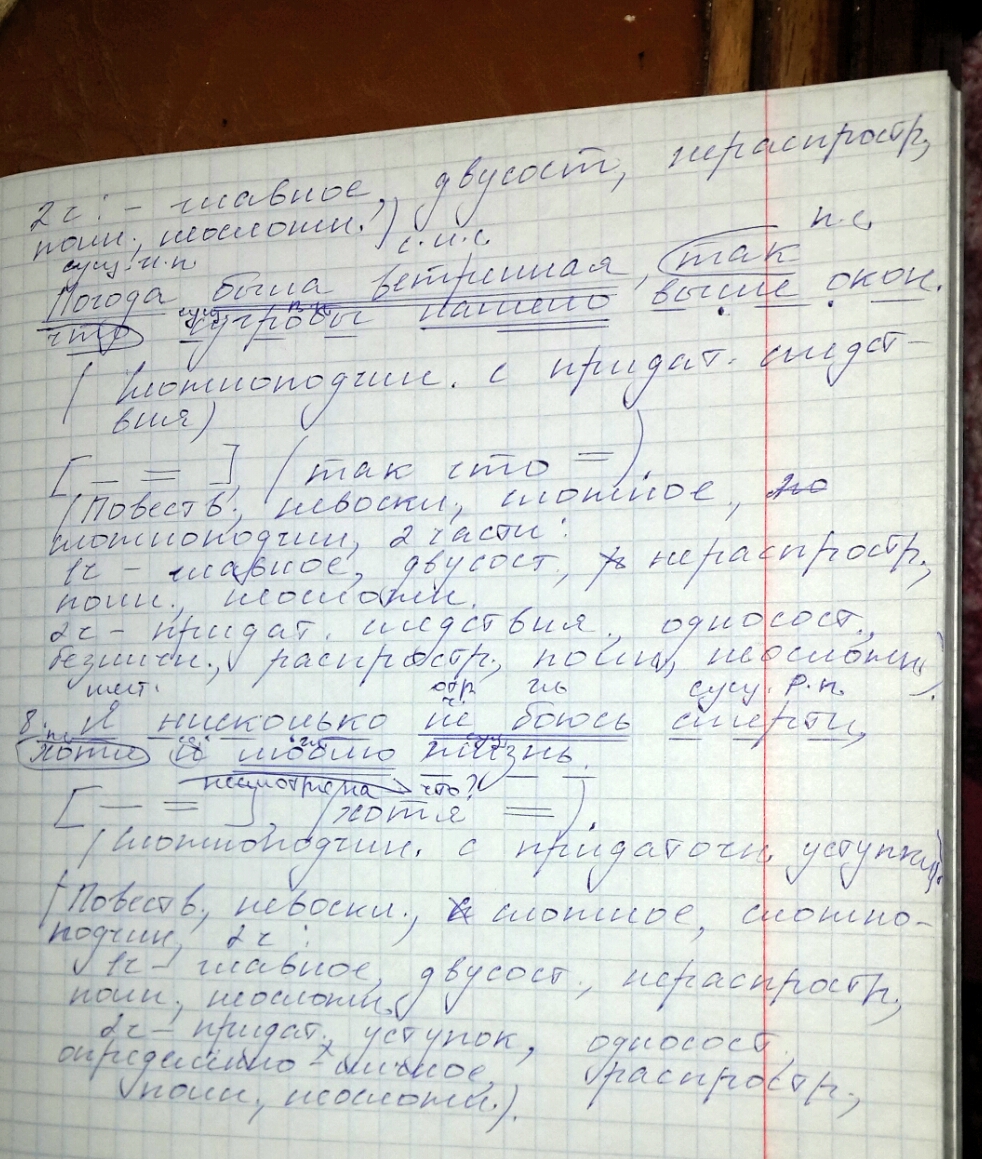 2ч: - главное, двусост, нераспростр,
полн., неосложн.)
сущ. и.п. с.и.с. п.с.
Погода была ветринная, так
что сугробы нашело выше окон.
(сложноподчин. с придат. следст-
вия)
[— =], (так что =).
(Повеств., невоскл., сложное,
сложноподчин, 2 части:
1ч - главное, двусост., нераспростр.,
полн., неосложн.
2ч - придат. следствия, односост.,
безличн., распростр., полн., неосложн).
мест. отр. ч. гл сущ. р.п.
8. Я нисколько не боюсь смерти,
хотя и люблю жизнь.
несмотря на что?
[— =], (хотя =).
(сложноподчин. с придаточн. уступки).
(Повеств., невоскл., сложное, сложно-
подчин, 2ч:
1ч - главное, двусост., нераспростр.,
полн., неосложн.
2ч - придат. уступок, односост.,
определённо-личное, распростр.,
полн., неосложн.).